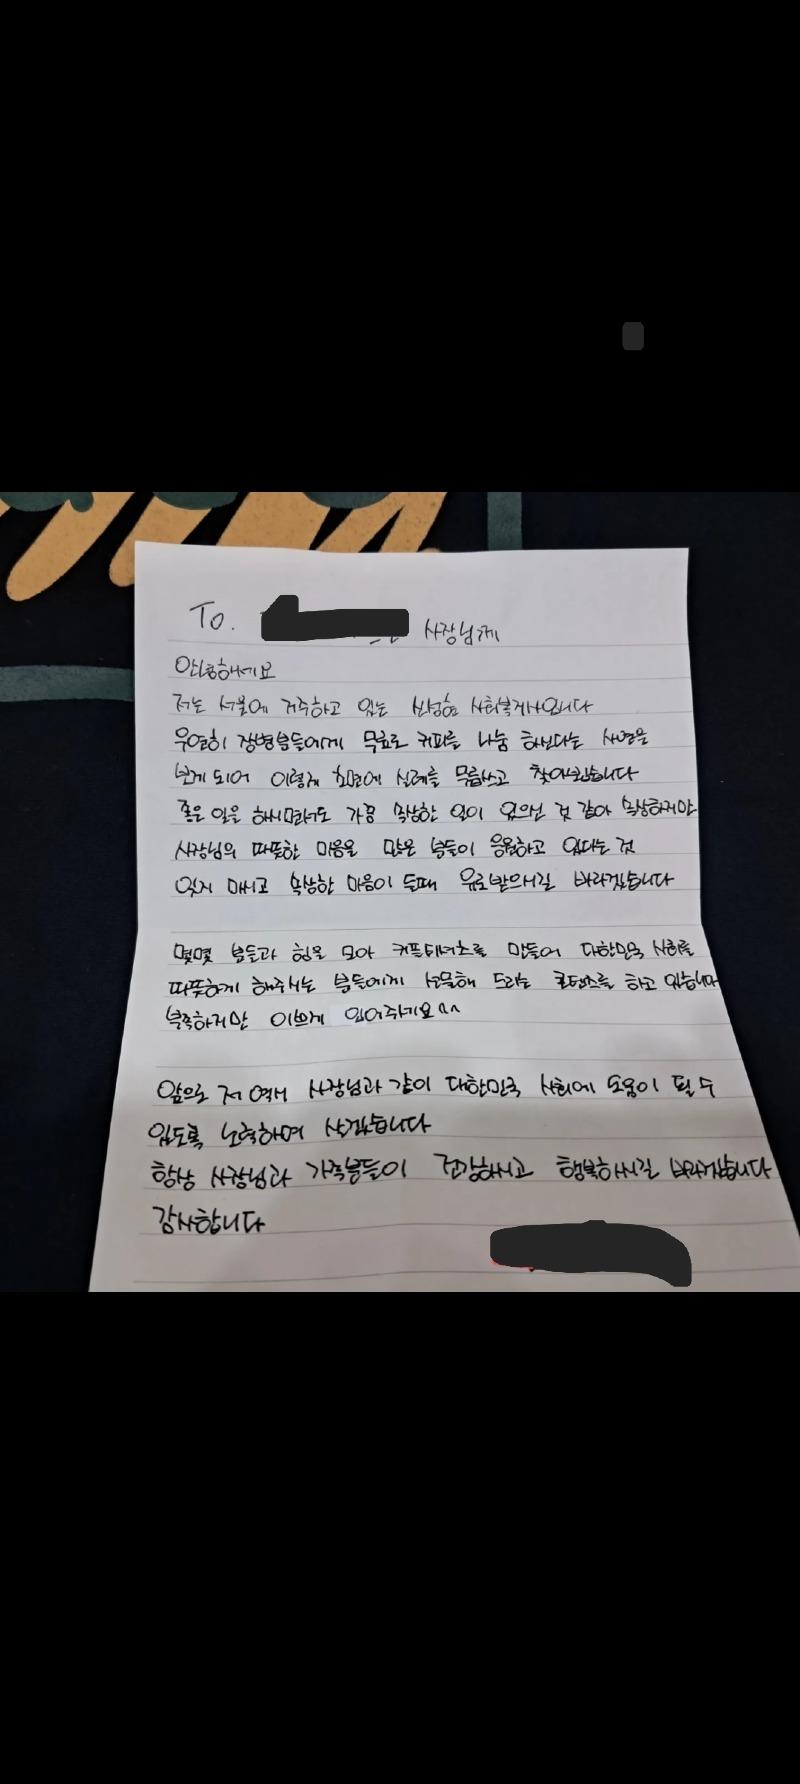 To. 사장님께
안녕하세요
저는 서울에 거주하고 있는 사회복지사입니다
우연히 장병분들에게 무료로 커피를 나눔 하신다는 사연을
보게 되어 이렇게 초면에 실례를 무릅쓰고 찾아뵀습니다
좋은 일을 하시면서도 가끔 속상한 일이 있으신 것 같아 속상하지만
사장님의 따뜻한 마음을 많은 분들이 응원하고 있다는 것
잊지 마시고 속상한 마음이 들때 위로받으시길 바라겠습니다
몇몇 분들과 힘을 모아 커플티셔츠를 만들어 대한민국 사회를
따뜻하게 해주시는 분들에게 선물해 드리는 컨텐츠를 하고 있습니다
부족하지만 이쁘게 입어주세요^^
앞으로 저 역시 사장님과 같이 대한민국 사회에 도움이 될 수
있도록 노력하며 살겠습니다
항상 사장님과 가족분들이 건강하시고 행복하시길 바라겠습니다
감사합니다